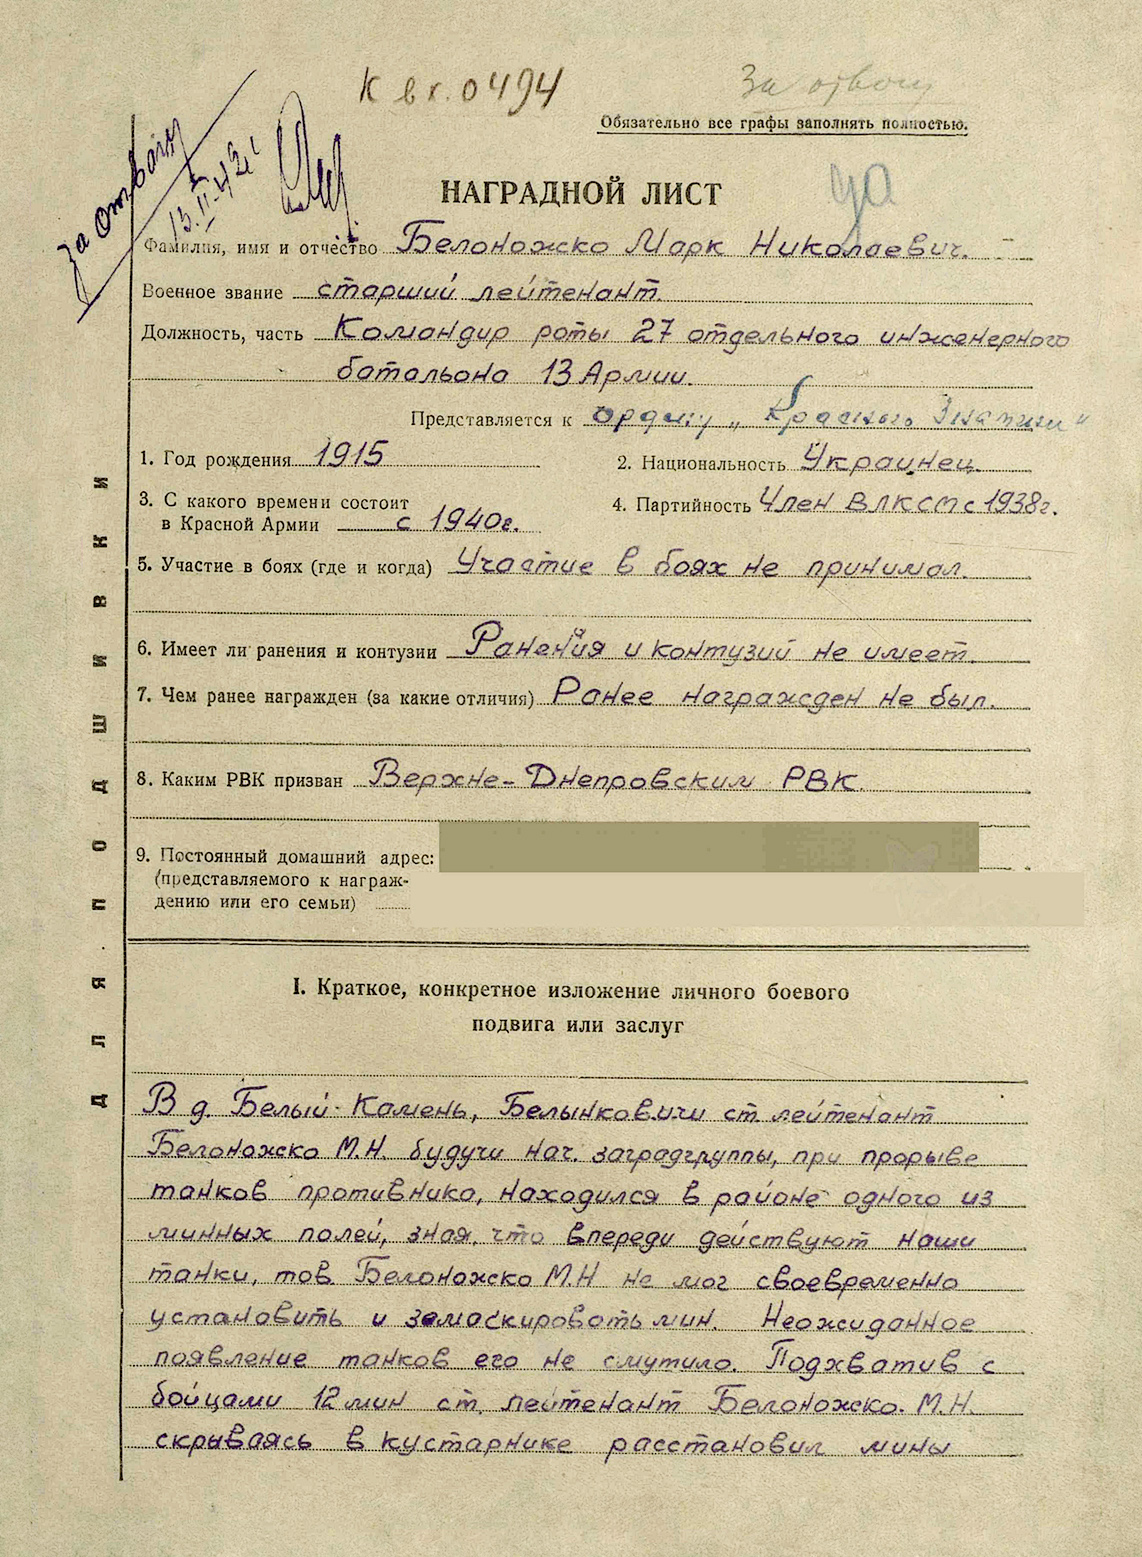 К вх. 0494
За отвагу
Обязательно все графы заполнять полностью.
за отвагу
13.II.42г
НАГРАДНОЙ ЛИСТ
Фамилия, имя и отчество Белоножско Марк Николаевич.
Военное звание старший лейтенант.
Должность, часть Командир роты 27 отдельного инженерного
батальона 13 Армии.
Представляется к ордену „Красного Знамени“
1. Год рождения 1915
2. Национальность Украинец.
3. С какого времени состоит
в Красной Армии с 1940г.
4. Партийность Член ВЛКСМ с 1938г.
5. Участие в боях (где и когда) Участие в боях не принимал.
6. Имеет ли ранения и контузии Ранений и контузий не имеет.
7. Чем ранее награжден (за какие отличия) Ранее награжден не был.
8. Каким РВК призван Верхне-Днепровским РВК.
9. Постоянный домашний адрес:
(представляемого к награж-
дению или его семьи)
ДЛЯ ПОДШИВКИ
I. Краткое, конкретное изложение личного боевого
подвига или заслуг
В д. Белый-Камень, Белынковичи ст. лейтенант
Белоножско М.Н. будучи нач. заградгруппы, при прорыве
танков противника, находился в районе одного из
минных полей, зная, что впереди действуют наши
танки, тов. Белоножско М.Н не мог своевременно
установить и замаскировать мин. Неожиданное
появление танков его не смутило. Подхватив с
бойцами 12 мин ст. лейтенант Белоножско. М.Н.
скрываясь в кустарнике расстановил мины